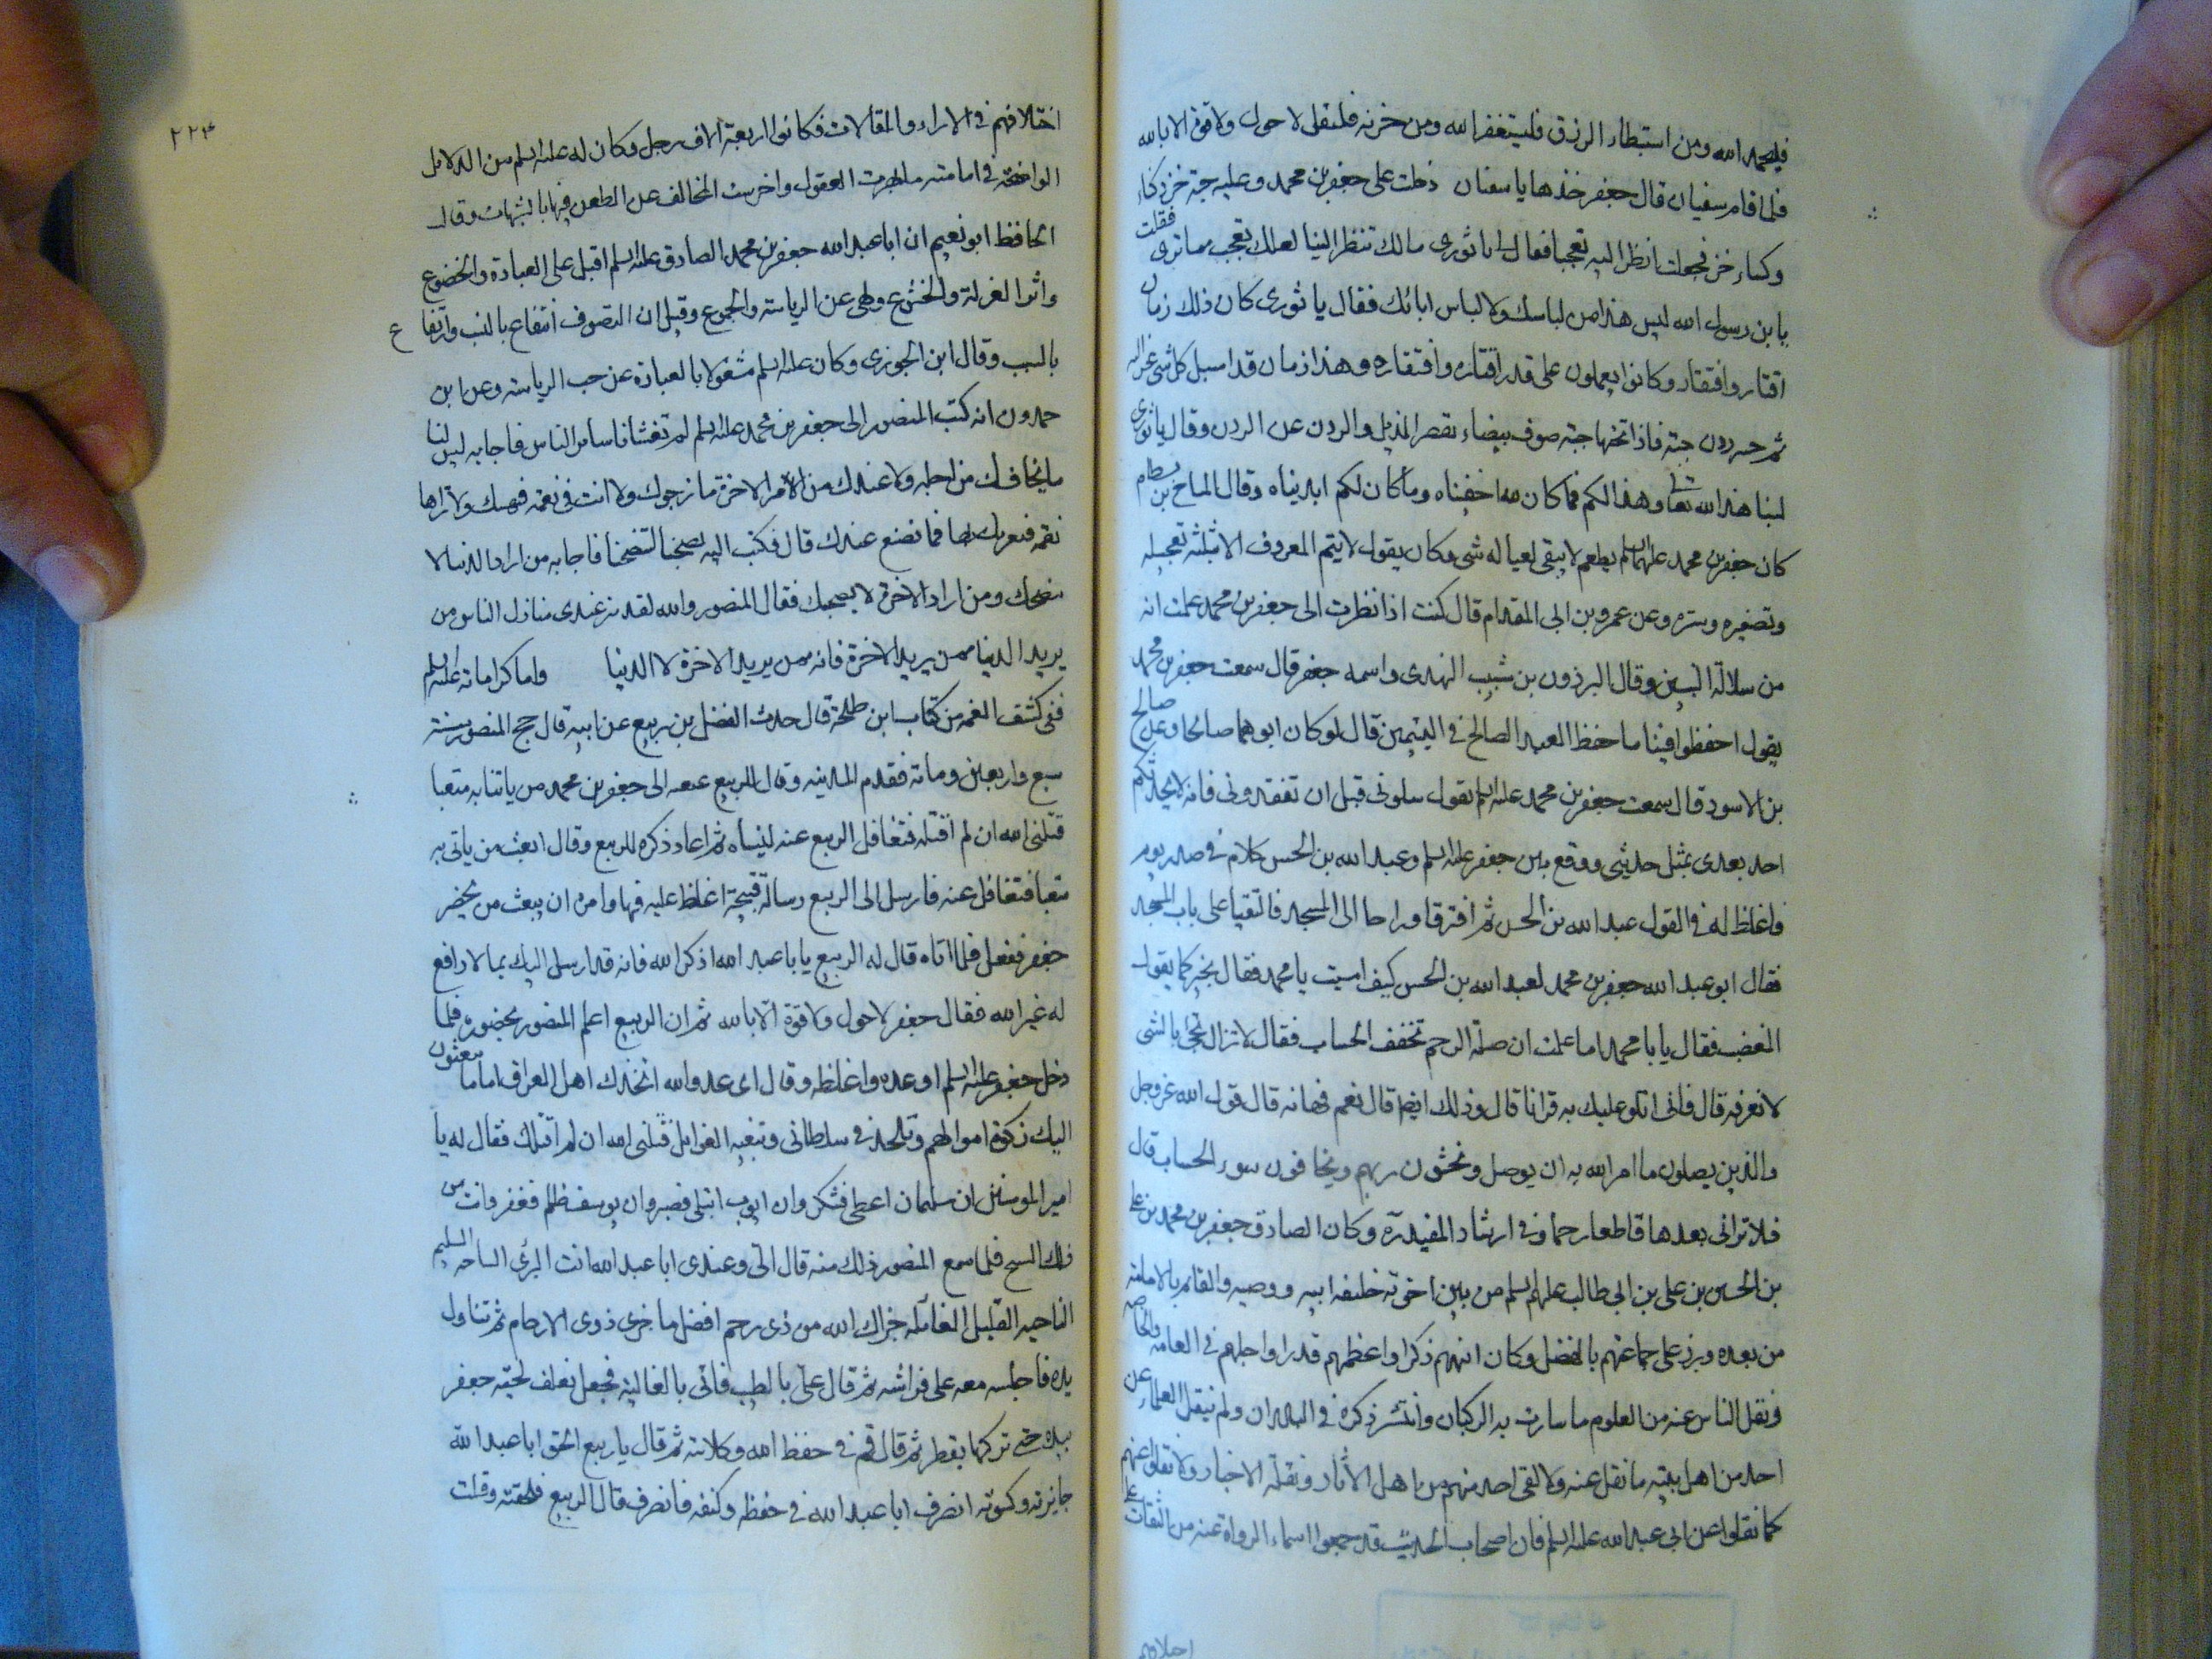 فليحمد الله ومن استبطاء الرزق فليستغفر الله ومن حزنه فليقل لا حول ولا قوة الا بالله
فلما قام سفيان قال جعفر خذها يا سفيان دخلت على جعفر بن محمد وعليه جبة خز دكناء
وكساء خز فجعلت انظر اليه تعجبا فقال يا ثورى مالك تنظر الينا لعلك تعجب مما ترى فقلت
يابن رسول الله ليس هذا من لباسك ولا لباس ابائك فقال يا ثورى كان ذلك زمان
اقتار وافتقار وكانوا يعملون على قدر اقتاره وافتقاره وهذا زمان قد اسبل كل شى عزاليه
ثم حسر ردن جبته فاذا تحتها جبة صوف بيضاء تقصر الذيل والردن عن الردن وقال يا ثورى
لبسنا هذا لله تعا وهذا لكم فما كان لله اخفيناه وما كان لكم ابديناه وقال الهياج بن بسطام
كان جعفر بن محمد عليهما السلم يطعم لا يبقى لعياله شى وكان يقول لا يتم المعروف الا بثلثه تعجيله
وتصغيره وستره وعن عمرو بن ابى المقدام قال كنت اذا نظرت الى جعفر بن محمد علمت انه
من سلالة النبيين وقال البرذون بن شبيب النهدى واسمه جعفر قال سمعت جعفر بن محمد
يقول احفظوا فينا ما حفظ العبد الصالح فى اليتيمين قال لو كان ابوهما صالحا وعن صالح
بن الاسود قال سمعت جعفر بن محمد عليه السلم يقول سلونى قبل ان تفقدونى فانه لا يحدثكم
احد بعدى بمثل حديثى ووقع بين جعفر عليه السلم وعبد الله بن الحسن كلام فى صدر يوم
فاغلظ له فى القول عبد الله بن الحسن ثم افترقا وراحا الى المسجد فالتقيا على باب المسجد
فقال ابو عبد الله جعفر بن محمد لعبد الله بن الحسن كيف امسيت يا محمد فقال بخير كما يقول
المغضب فقال يا با محمد اما علمت ان صلة الرحم تخفف الحساب فقال لا تزال تجئ بالشى
لا نعرفه قال فانى اتلو عليك به قرانا قال وذلك ايضا قال نعم فهاته قال قول الله عز وجل
والذين يصلون ما امر الله به ان يوصل ويخشون ربهم ويخافون سوء الحساب قال
فلا ترانى بعدها قاطعا رحما وفى ارشاد المفيد ره وكان الصادق جعفر بن محمد بن على
بن الحسين بن على بن ابى طالب عليهم السلم من بين اخوته خليفه ابيه ووصيه والقائم بالامامة
من بعده وبرز على جماعتهم بالفضل وكان انبههم ذكرا واعظمهم قدرا واجلهم فى العامه والخاصه
ونقل الناس عنه من العلوم ما سارت به الركبان وانتشر ذكره فى البلدان ولم ينقل العلماء عن
احد من اهل بيته ما نقل عنه ولا لقى احد منهم من اهل الآثار ونقلة الاخبار ولا نقلوا عنهم
كما نقلوا عن ابى عبد الله عليه السلم فان اصحاب الحديث قد جمعوا اسماء الرواة عنه من الثقات على
اختلافهم
٢٢٣
اختلافهم فى الاراء والمقالات فكانوا اربعة آلاف رجل وكان له عليه السلم من الدلائل
الواضحة فى امامته ما بهرت العقول واخرست المخالف عن الطعن فيها بالشبهات وقال
الحافظ ابو نعيم ان ابا عبد الله جعفر بن محمد الصادق عليه السلم اقبل على العبادة والخضوع
واثر العزلة والخشوع ولهى عن الرياسة والجموع وقيل ان التصوف انتفاع بالنسب وارتفاع
بالسبب وقال ابن الجوزى وكان عليه السلم مشغولا بالعبادة عن حب الرياسة وعن ابن
حمدون انه كتب المنصور الى جعفر بن محمد عليه السلم لم تغشانا ساير الناس فاجابه ليس لنا
ما نخافك من اجله ولا عندك من الامر الاخرة ما نرجوك ولا انت فى نعمة فنهنيك ولا تراها
نقمة فنعزيك بها فما نصنع عندك قال فكتب اليه تصحبنا لتنصحنا فاجابه من اراد الدنيا لا
ينصحك ومن اراد الاخرة لا يصحبك فقال المنصور والله لقد ميز عندى منازل الناس من
يريد الدنيا ممن يريد الاخرة فانه ممن يريد الاخرة لا الدنيا واما كراماته عليه السلم
ففى كشف الغمه من كتاب ابن طلحة قال حدث الفضل بن ربيع عن ابيه قال حج المنصور سنة
سبع واربعين ومائة فقدم المدينه وقال للربيع ابعث الى جعفر بن محمد من ياتنا به متعبا
قتلنى الله ان لم اقتله فتغافل الربيع عنه لينساه ثم اعاد ذكره للربيع وقال ابعث من ياتى به
متعبا فتغافل عنه فارسل الى الربيع رسالة قبيحة اغلظ عليه فيها وامره ان يبعث من يحضر
جعفر ففعل فلما اتاه قال له الربيع يا با عبد الله اذكر الله فانه قد ارسل اليك بما لا دافع
له غير الله فقال جعفر لا حول ولا قوة الا بالله ثم ان الربيع اعلم المنصور بحضوره فلما
دخل جعفر عليه السلم اوعده واغلظه وقال اى عدو الله اتخذك اهل العراق اماما يبعثون
اليك زكوة اموالهم وتلحد فى سلطانى وتبغيه الغوايل قتلنى الله ان لم اقتلك فقال له يا
امير المومنين ان سليمان اعطى فشكر وان ايوب ابتلى فصبر وان يوسف ظلم فغفر وانت من
ذلك السنخ فلما سمع المنصور ذلك منه قال الى وعندى ابا عبد الله انت البرئ الساحه السليم
الناحيه القليل الغائله جزاك الله من ذى رحم افضل ما جزى ذوى الارحام ثم تناول
يده فاجلسه معه على فراشه ثم قال على بالطيب فاتى بالغالية فجعل يغلف لحيته جعفر
بيده حتى تركها تقطر ثم قال قم فى حفظ الله وكلائته ثم قال يا ربيع الحق ابا عبد الله
جايزته وكسوته انصرف ابا عبد الله فى حفظه وكنفه فانصرف قال الربيع فلحقته وقلت